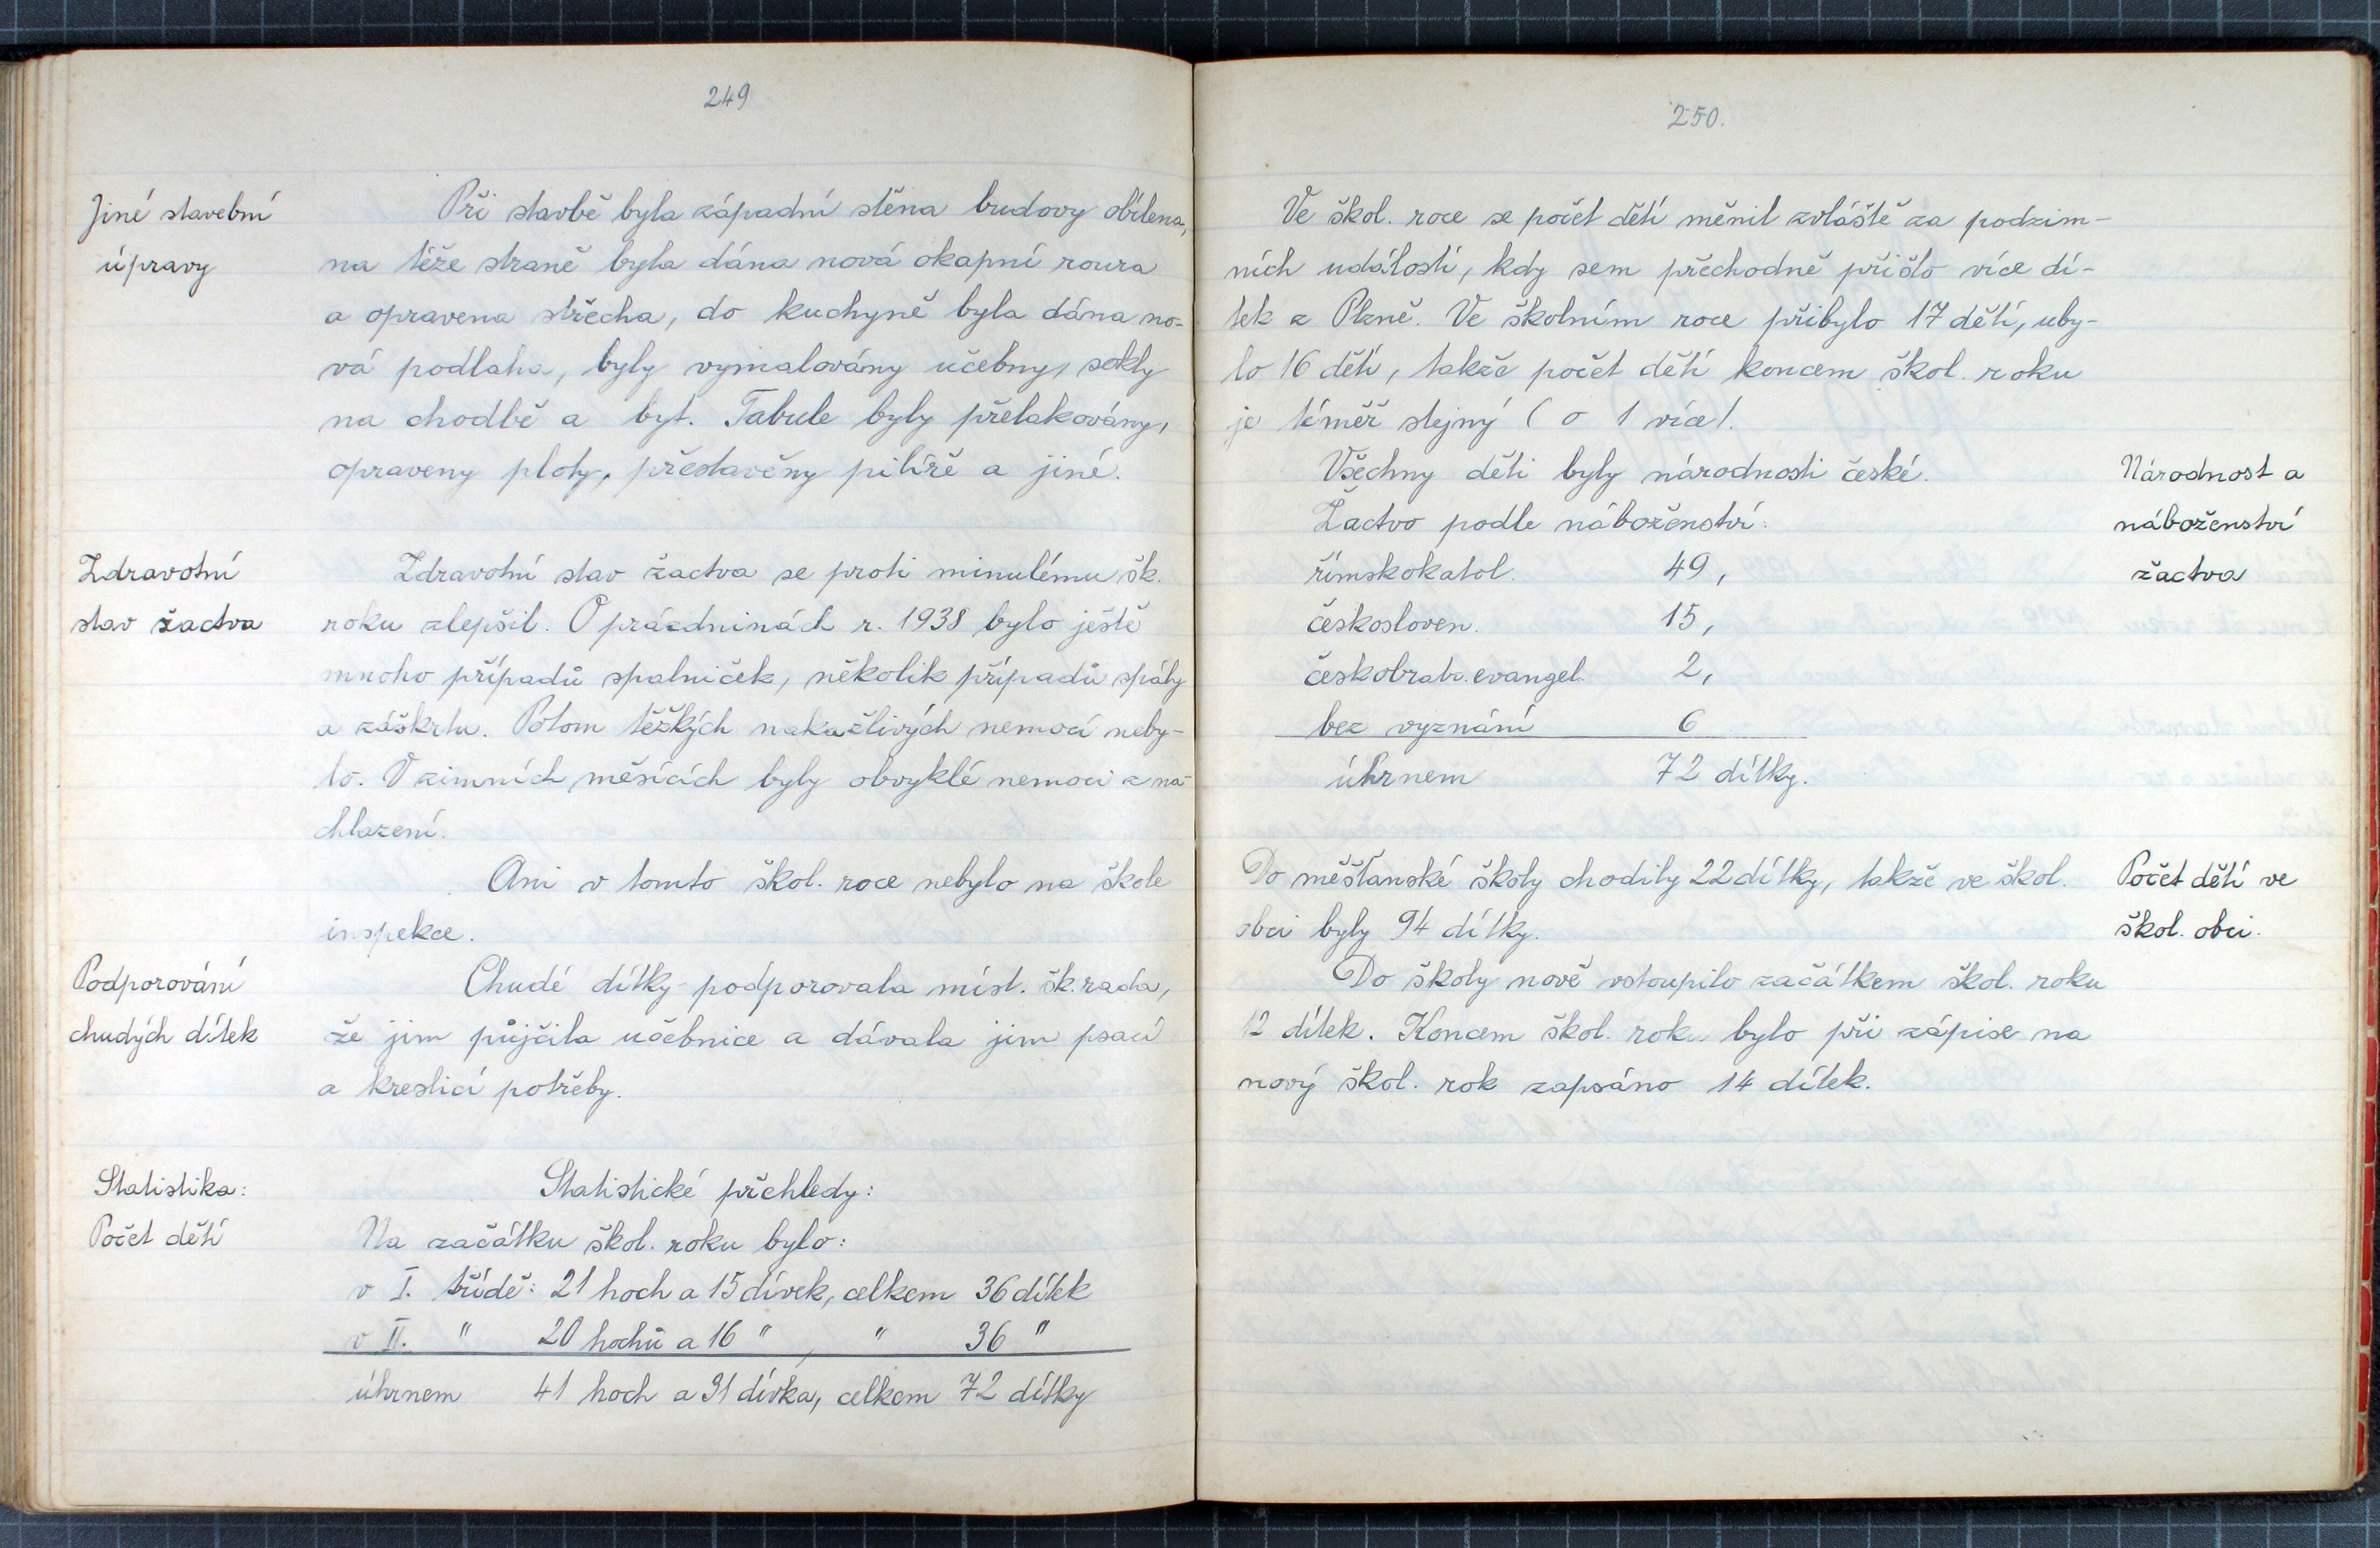 249
Jiné stavební
úpravy
Při stavbě byla západní stěna budovy obílena,
na téže straně byla dána nová okapní roura
a opravena střecha, do kuchyně byla dána no-
vá podlaha, byly vymalovány učebny, sokly
na chodbě a byt. Tabule byly přelakovány,
opraveny ploty, přestavěny pilíře a jiné.
Zdravotní
stav žactva
Zdravotní stav žactva se proti minulému šk.
roku zlepšil. O prázdninách r. 1938 bylo ještě
mnoho případů spalniček, několik případů spály
a záškrtu. Potom těžkých nakažlivých nemocí neby-
lo. V zimních měsících byly obvyklé nemoci z na-
chlazení.
Ani v tomto škol. roce nebylo na škole
inspekce.
Podporování
chudých dítek
Chudé dítky podporovala míst. šk. rada,
že jim půjčila učebnice a dávala jim psací
a kreslicí potřeby.
Statistika:
Počet dětí
Statistické přehledy:
Na začátku škol. roku bylo:
v I. třídě: 21 hoch a 15 dívek, celkem 36 dítek
v II. " 20 hochů a 16 " , " 36 "
úhrnem 41 hoch a 31 dívka, celkem 72 dítky
250.
Ve škol. roce se počet dětí měnil zvláště za podzim-
ních událostí, kdy sem přechodně přišlo více dí-
tek z Plzně. Ve školním roce přibylo 17 dětí, uby-
lo 16 dětí, takže počet dětí koncem škol. roku
je téměř stejný (o 1 více).
Všechny děti byly národnosti české.
Národnost a
náboženství
žactva
Žactvo podle náboženství:
římskokatol. 49,
českosloven. 15,
českobratr. evangel. 2,
bez vyznání 6
úhrnem 72 dítky.
Do měšťanské školy chodily 22 dítky, takže ve škol.
obci byly 94 dítky.
Počet dětí ve
škol. obci.
Do školy nově vstoupilo začátkem škol. roku
12 dítek. Koncem škol. roku bylo při zápise na
nový škol. rok zapsáno 14 dítek.